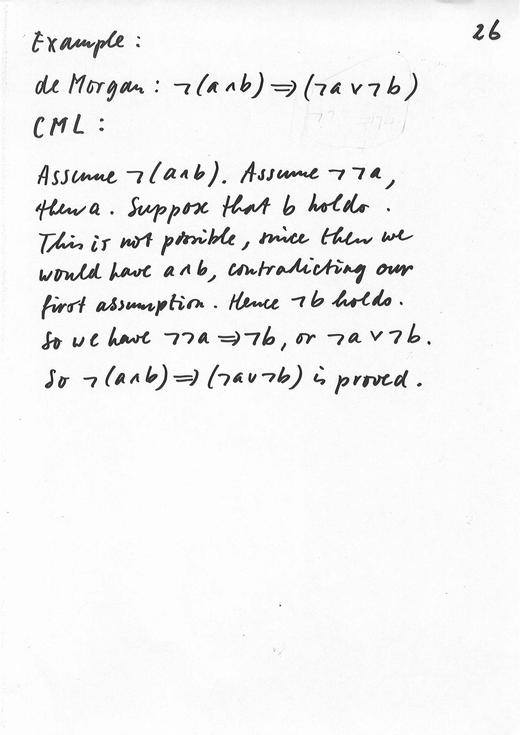 26
Example :
de Morgan : ¬(a∧b) ⇒ (¬a ∨ ¬b)
CML :
Assume ¬(a∧b). Assume ¬¬a,
then a. Suppose that b holds .
This is not possible, since then we
would have a∧b, contradicting our
first assumption. Hence ¬b holds.
So we have ¬¬a ⇒ ¬b, or ¬a ∨ ¬b.
So ¬(a∧b) ⇒ (¬a∨¬b) is proved.